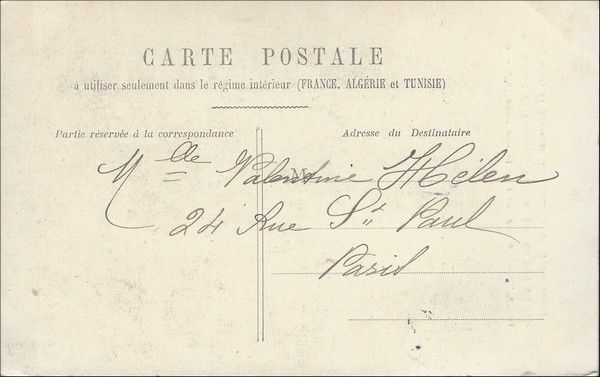 CARTE POSTALE
à utiliser seulement dans le régime intérieur (FRANCE, ALGÉRIE et TUNISIE)
Partie réservée à la correspondance
Adresse du Destinataire
M
Mlle Valentine Hélen
24 Rue St Paul
Paris